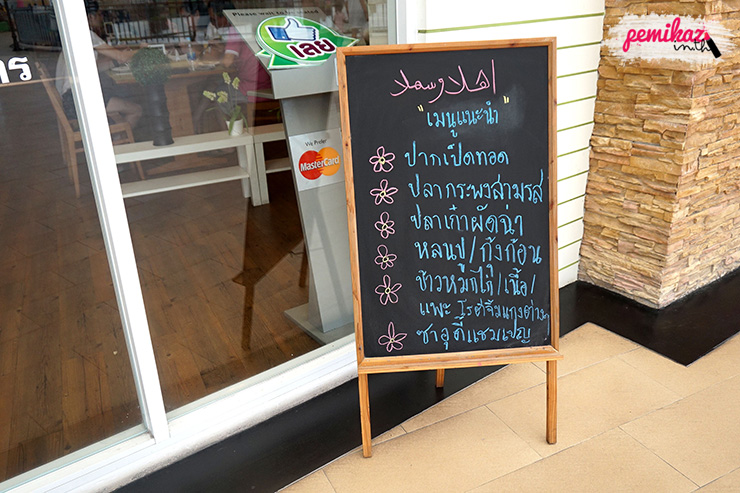 pemikaz
inwth
Please wait to be seated
เลย
าร
We Prefer
MasterCard
اهلا وسهلا
"เมนูแนะนำ"
ปากเป็ดทอด
ปลากระพงสามรส
ปลาเก๋าผัดฉ่า
หลนปู/กุ้งก้อน
ข้าวหมกไก่/เนื้อ/
แพะ โรตีจิ้มแกงต่างๆ
ซาอุดี้แชมเปญ